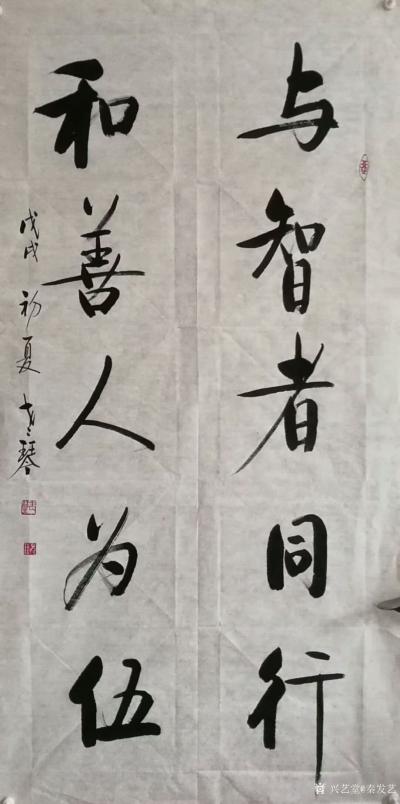 与智者同行
和善人为伍
戊戌初夏
琴
兴艺堂@秦发艺